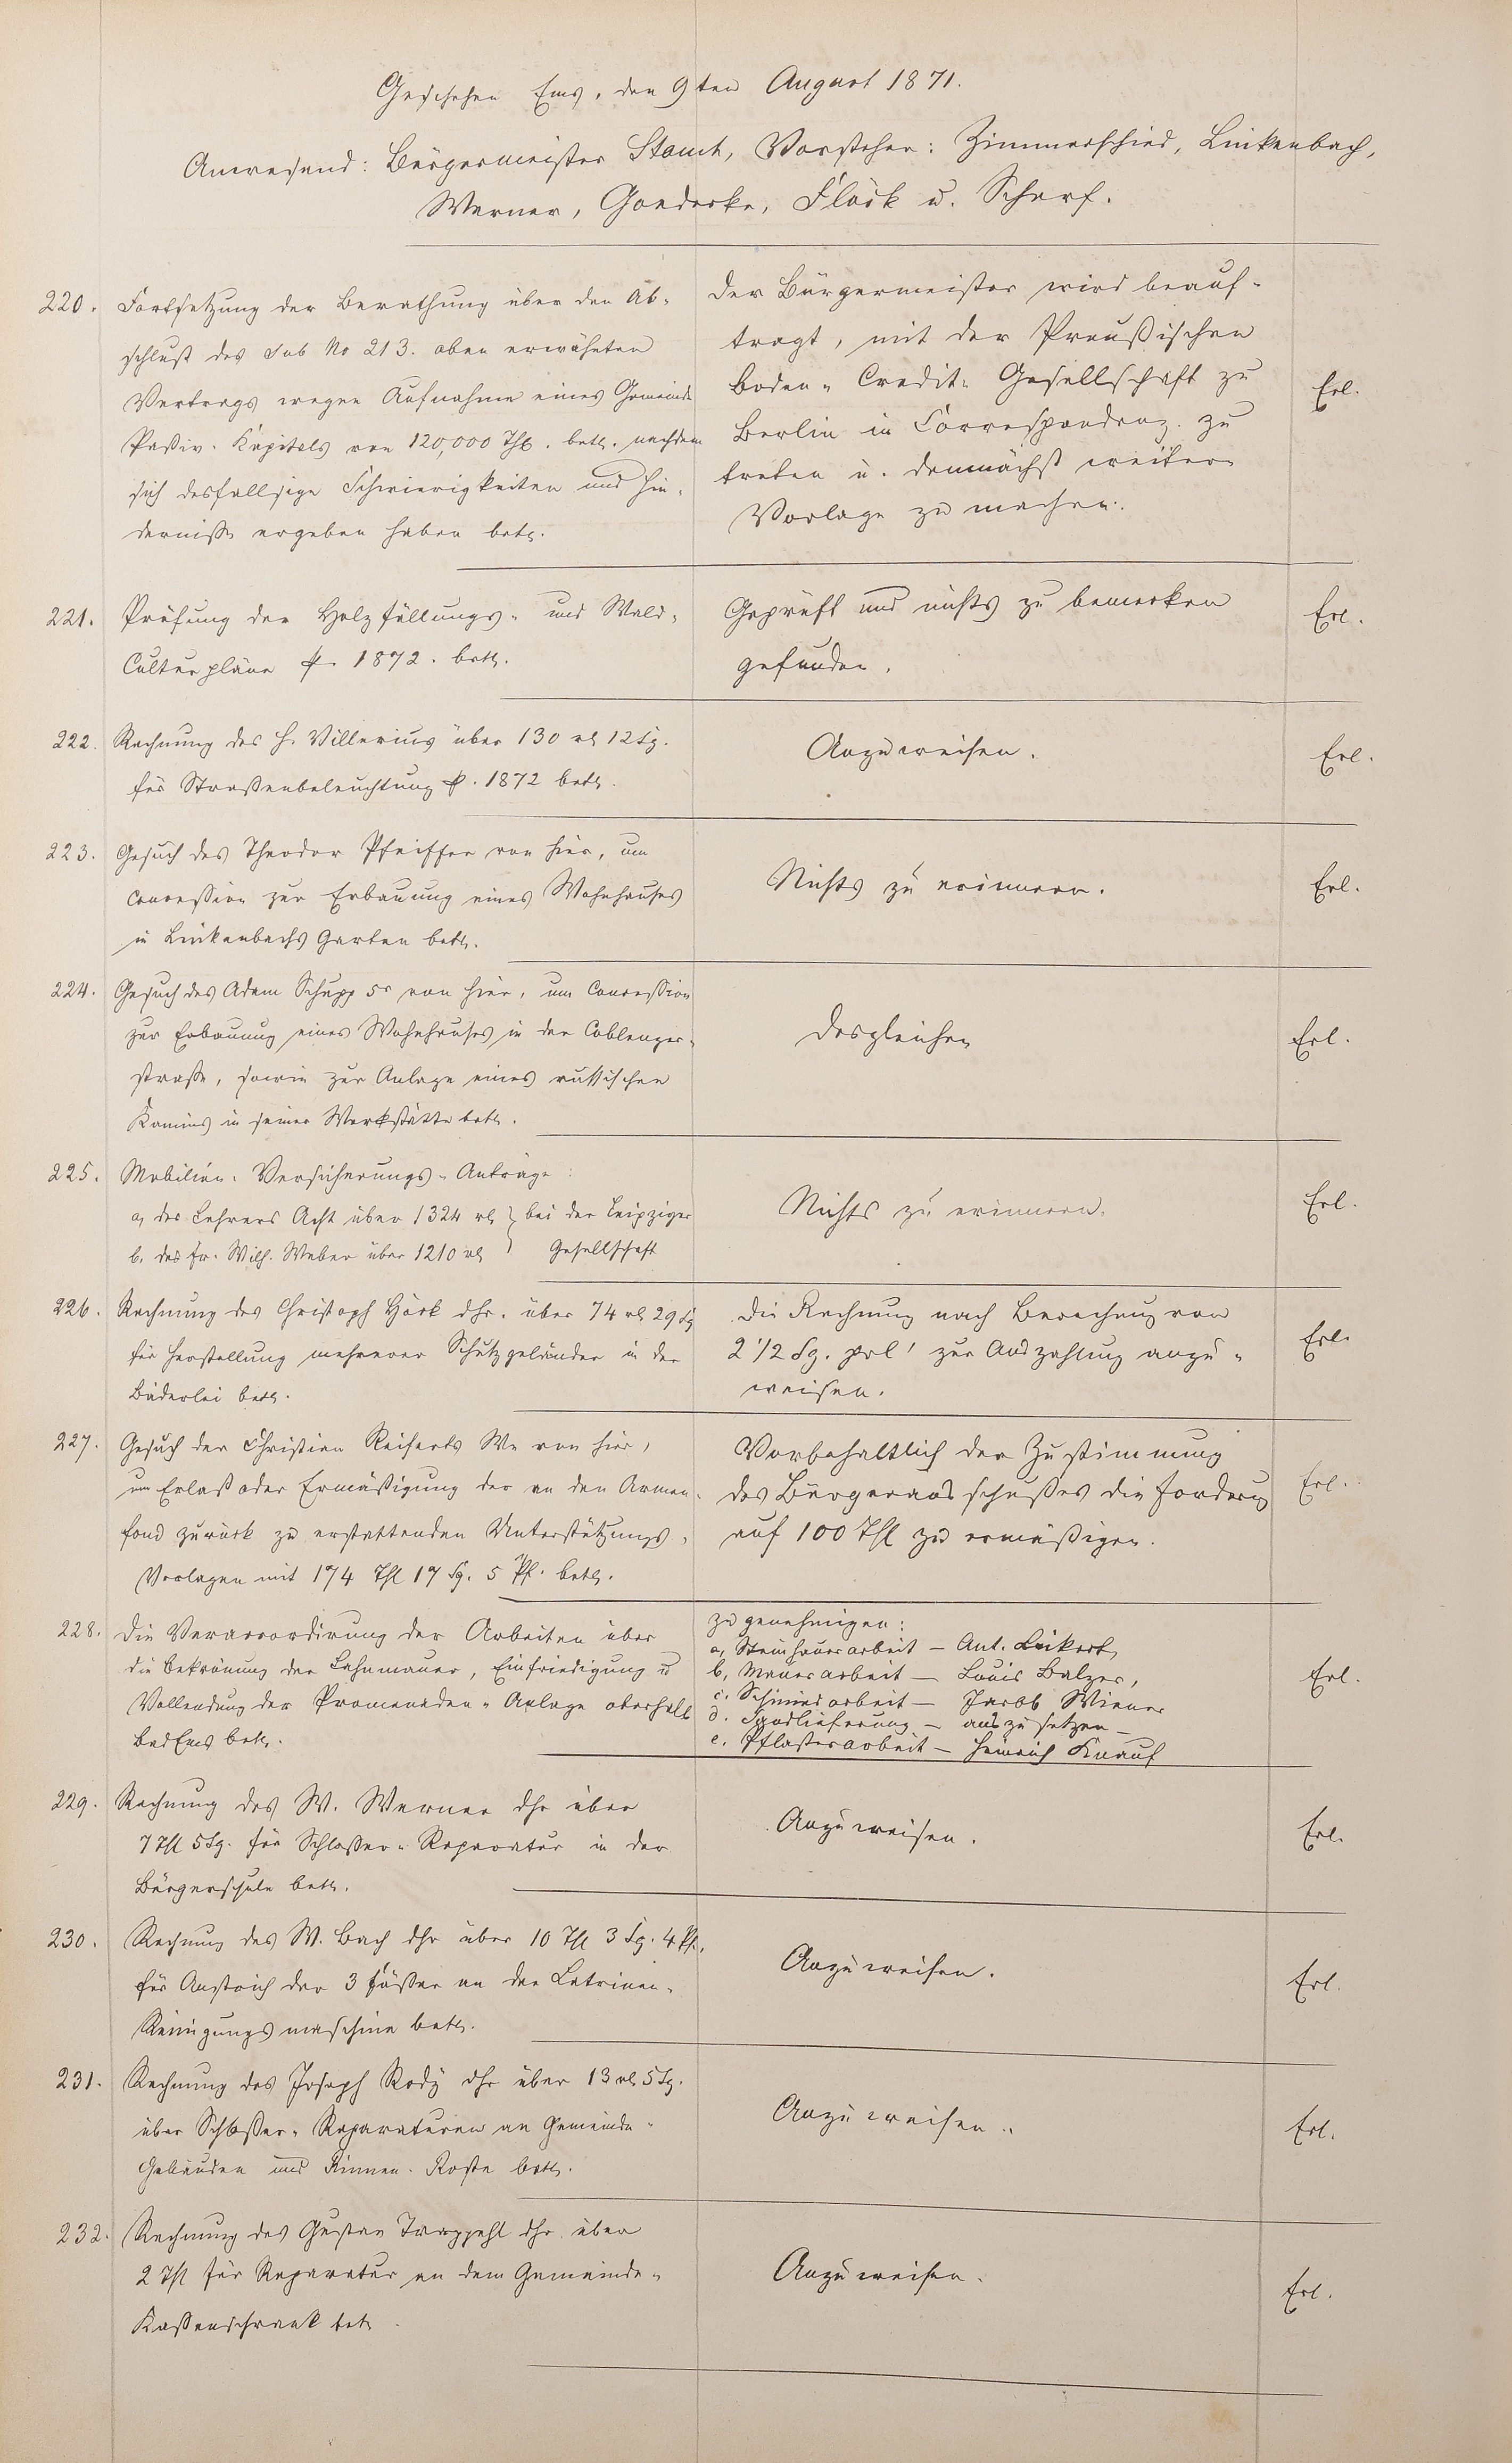 Geschehen Ems, den 9ten August 1871.
Anwesend: Bürgermeister Stamt, Vorsteher: Zimmerschied, Linkenbach,
Werner, Goedecke, Flöck u. Scherf.
220. Fortsetzung der Berathung über den Ab-
schluß des sub No 213. oben erwähnten
Vertrags wegen Aufnahme eines Gemeinde
Passiv-Kapitals von 120,000 Thl. betr. nachdem
sich desfallsige Schwierigkeiten und Hin-
dernisse ergeben haben betr.
Der Bürgermeister wird beauf-
tragt, mit der Preußischen
Boden-Credit-Gesellschaft zu
Berlin in Correspondenz zu
treten u. demnächst weitere
Vorlage zu machen.
Erl.
221. Prüfung der Holzfällungs- und Wald-
Culturpläne p. 1872. betr.
Geprüft und nichts zu bemerken
gefunden.
Erl.
222. Rechnung des H. Villerius über 130 rl 12 Sg.
für Straßenbeleuchtung p. 1872 betr.
Anzuweisen.
Erl.
223. Gesuch des Theodor Pfeiffer von hier, um
Concession zur Erbauung eines Wohnhauses
in Linkenbachs Garten betr.
Nichts zu erinnern.
Erl.
224. Gesuch des Adam Schupp 5r von hier, um Concession
zur Erbauung eines Wohnhauses in der Coblenzer-
straße, sowie zur Anlage eines russischen
Kamins in seiner Werkstätte betr.
Desgleichen
Erl.
225. Mobiliar-Versicherungs-Anträge:
a, des Lehrers Acht über 1324 rl } bei der Leipziger
b, des Fr. Wilh. Weber über 1210 rl } Gesellschaft
Nichts zu erinnern.
Erl.
226. Rechnung des Christoph Höck dhr. über 74 rl 29 Sg
für Herstellung mehrerer Schutzgeländer in der
Bäderlei betr.
Die Rechnung nach Berechnung von
2 1/2 Sg. prl' zur Auszahlung anzu-
weisen.
Erl.
227. Gesuch der Christian Reiferts We von hier,
um Erlaß oder Ermäßigung der an den Armen-
fond zurück zu erstattenden Unterstützungs-
Vorlagen mit 174 Thl 17 Sg. 5 Pf. betr.
Vorbehaltlich der Zustimmung
des Bürgerausschußes die Forderung
auf 100 Thl zu ermäßigen.
Erl.
228. Die Veraccordirung der Arbeiten über
die Bekrönung der Lahnmauer, Einfriedigung u
Vollendung der Promenaden-Anlage oberhalb
Bad Ems betr.
zu genehmigen:
a, Steinhauerarbeit – Ant. Leikert,
b, Maurerarbeit – Louis Balzer,
c. Schmiedarbeit – Jacob Wiener
d. Sandlieferung – auszusetzen –
e. Pflasterarbeit – Heinrich Knauf
Erl.
229. Rechnung des W. Werner dhr über
7 Thl 5 Sg. für Schlosser-Reparatur in der
Bürgerschule betr.
Anzuweisen.
Erl.
230. Rechnung des W. Bach dhr über 10 Thl 3 Sg. 4 Pf.
für Anstrich der 3 Fässer an der Latrinen-
Reinigungsmaschine betr.
Anzuweisen.
Erl.
231. Rechnung des Joseph Rody dhr über 13 rl 5 Sg.
über Schlosser-Reparaturen an Gemeinde-
Gebäuden und Rinnen-Roste betr.
Anzuweisen.
Erl.
232. Rechnung des Gustav Trappehl dhr. über
2 Thl für Reparatur an dem Gemeinde-
Kassenschrank betr.
Anzuweisen.
Erl.